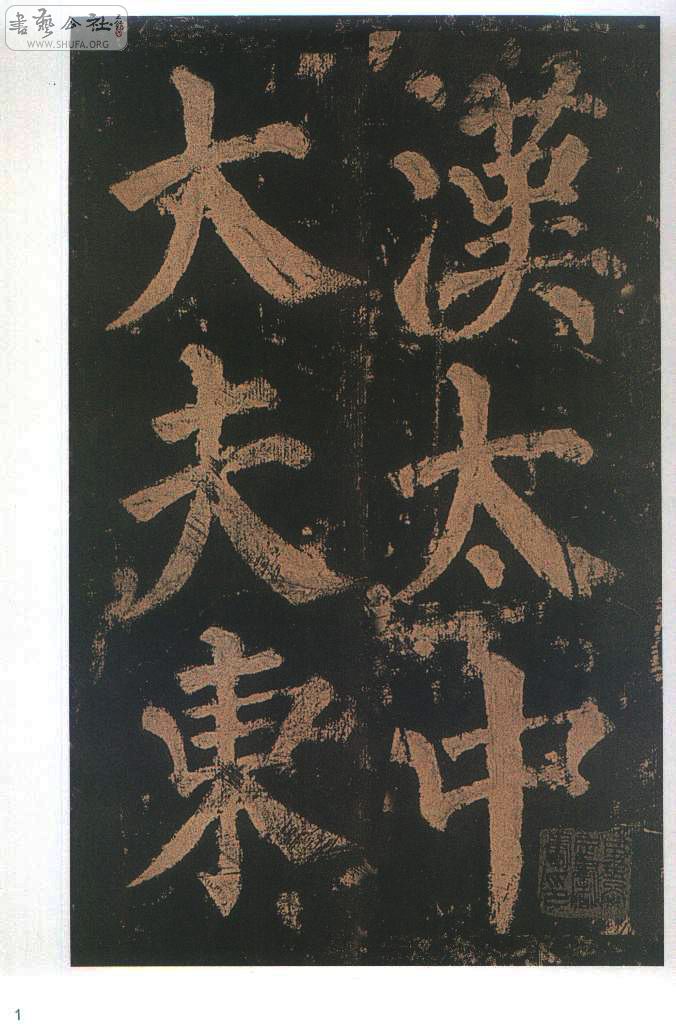 漢太中
大夫東
書藝公社
WWW.SHUFA.ORG
1